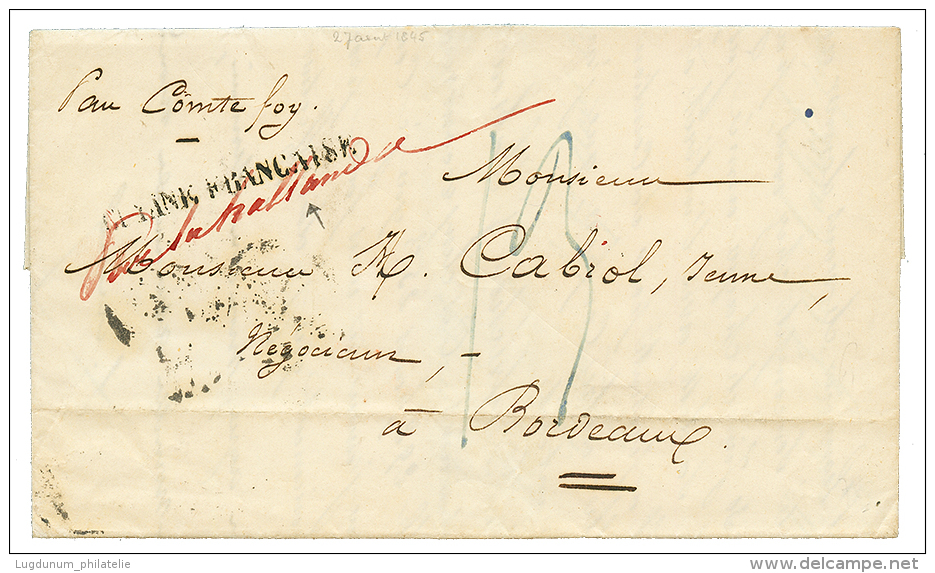 27 aout 1845
Par Comte foy.
GUYANE FRANCAISE
Monsieur
Monsieur H. Cabrol, Jeune,
Négociant, -
à Bordeaux.
13
Lugdunum_philatelie
delcampe.net